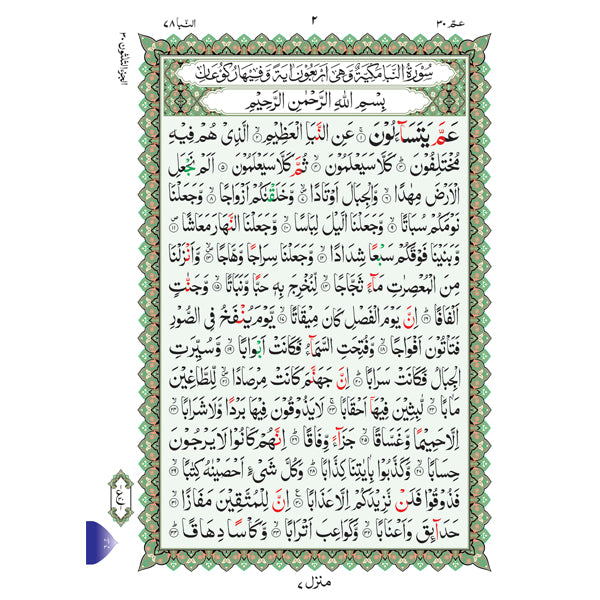 عمّ ۳۰
۲
النبا ۷۸
سُوْرَةُ النَّبَإِ مَكِّيَّةٌ وَّهِيَ اَرْبَعُوْنَ اٰيَةً وَّفِيْهَا رُكُوْعَانِ
بِسْمِ اللّٰهِ الرَّحْمٰنِ الرَّحِيْمِ
عَمَّ يَتَسَآءَلُوْنَ ۱ عَنِ النَّبَاِ الْعَظِيْمِ ۲ الَّذِيْ هُمْ فِيْهِ
مُخْتَلِفُوْنَ ۳ كَلَّا سَيَعْلَمُوْنَ ۴ ثُمَّ كَلَّا سَيَعْلَمُوْنَ ۵ اَلَمْ نَجْعَلِ
الْاَرْضَ مِهٰدًا ۶ وَّالْجِبَالَ اَوْتَادًا ۷ وَّخَلَقْنٰكُمْ اَزْوَاجًا ۸ وَّجَعَلْنَا
نَوْمَكُمْ سُبَاتًا ۹ وَّجَعَلْنَا الَّيْلَ لِبَاسًا ۱۰ وَّجَعَلْنَا النَّهَارَ مَعَاشًا ۱۱
وَّبَنَيْنَا فَوْقَكُمْ سَبْعًا شِدَادًا ۱۲ وَّجَعَلْنَا سِرَاجًا وَّهَّاجًا ۱۳ وَّاَنْزَلْنَا
مِنَ الْمُعْصِرٰتِ مَآءً ثَجَّاجًا ۱۴ لِّنُخْرِجَ بِهٖ حَبًّا وَّنَبَاتًا ۱۵ وَّجَنّٰتٍ
اَلْفَافًا ۱۶ اِنَّ يَوْمَ الْفَصْلِ كَانَ مِيْقَاتًا ۱۷ يَّوْمَ يُنْفَخُ فِي الصُّوْرِ
فَتَاْتُوْنَ اَفْوَاجًا ۱۸ وَّفُتِحَتِ السَّمَآءُ فَكَانَتْ اَبْوَابًا ۱۹ وَّسُيِّرَتِ
الْجِبَالُ فَكَانَتْ سَرَابًا ۲۰ اِنَّ جَهَنَّمَ كَانَتْ مِرْصَادًا ۲۱ لِّلطَّاغِيْنَ
مَاٰبًا ۲۲ لّٰبِثِيْنَ فِيْهَا اَحْقَابًا ۲۳ لَا يَذُوْقُوْنَ فِيْهَا بَرْدًا وَّلَا شَرَابًا ۲۴
اِلَّا حَمِيْمًا وَّغَسَّاقًا ۲۵ جَزَآءً وِّفَاقًا ۲۶ اِنَّهُمْ كَانُوْا لَا يَرْجُوْنَ
حِسَابًا ۲۷ وَّكَذَّبُوْا بِاٰيٰتِنَا كِذَّابًا ۲۸ وَكُلَّ شَيْءٍ اَحْصَيْنٰهُ كِتٰبًا ۲۹
فَذُوْقُوْا فَلَنْ نَّزِيْدَكُمْ اِلَّا عَذَابًا ۳۰ اِنَّ لِلْمُتَّقِيْنَ مَفَازًا ۳۱
حَدَآئِقَ وَاَعْنَابًا ۳۲ وَّكَوَاعِبَ اَتْرَابًا ۳۳ وَّكَاْسًا دِهَاقًا ۳۴
منزل ۷
الجزء الثلثون ۳۰